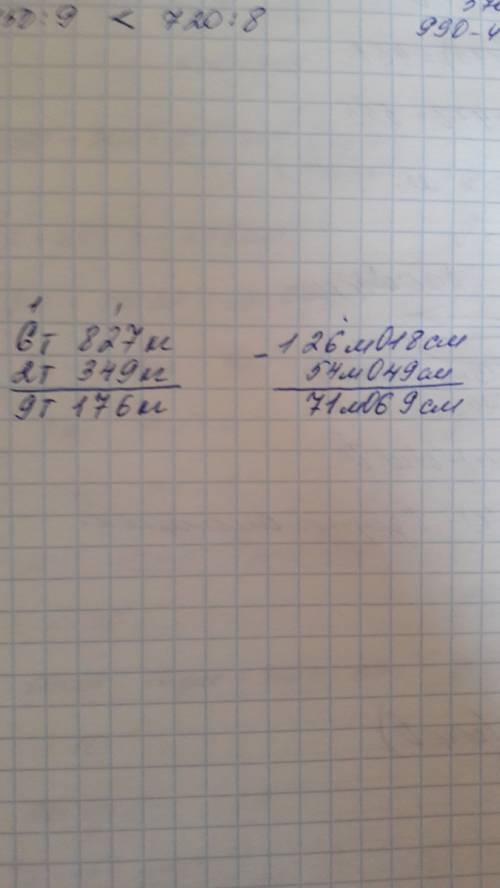 :9 < 720:8
990-4
1 1
6т 827кг
2т 349кг
9т 176кг
- 126м018см
54м049см
71м069см